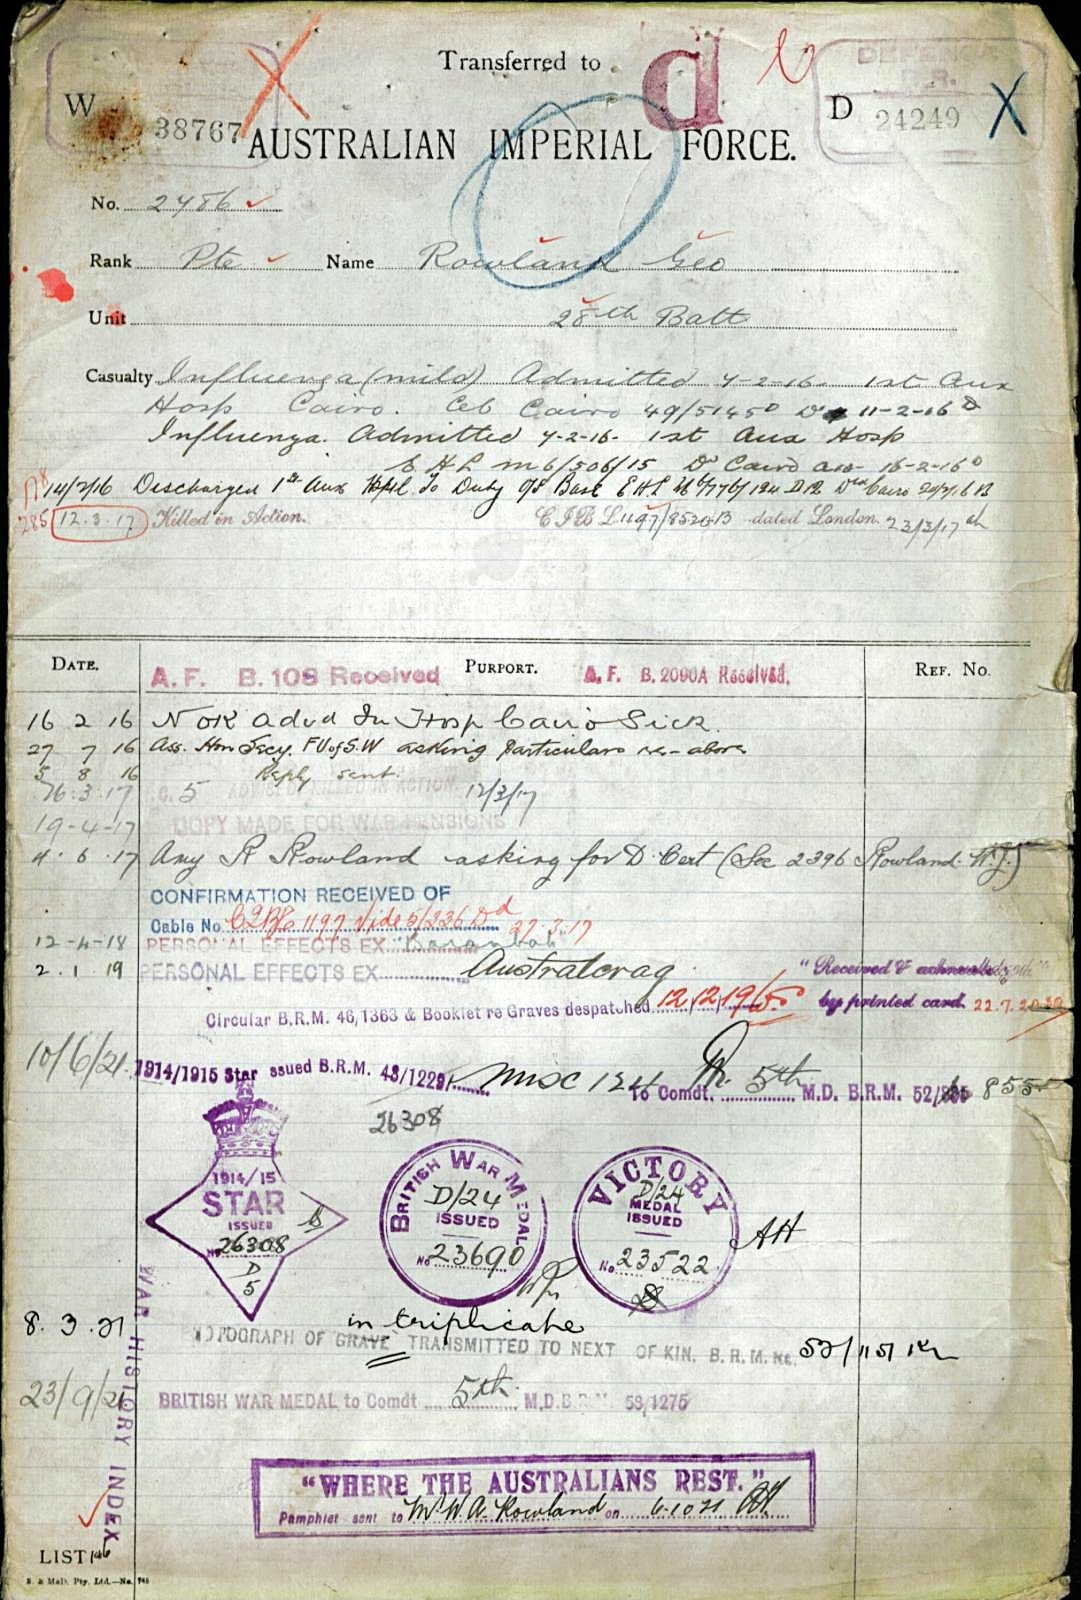 Transferred to d
W 38767
D 24249 X
AUSTRALIAN IMPERIAL FORCE.
No. 2486
Rank Pte Name Rowland Geo
Unit 28th Batt
Casualty Influenza (mild) Admitted 7-2-16. 1st Aux
Hosp Cairo. Cairo 49/5145 11-2-16
Influenza. Admitted 7-2-16. 1st Aux Hosp
E H L M6/506/15 Cairo 16-2-16
14/2/16 Discharged 1st Aux Hospl To Duty O/S Base E H L Cairo
285 12.3.17 Killed in Action. C I B L 1197/8520B dated London. 23/3/17
DATE. PURPORT. REF. NO.
A.F. B.108 Received A.F. B.2090A Received.
16 2 16 N OK advd In Hosp Cairo Sick
27 7 16 Ass. Hon Secy. asking particulars re above
5 8 16 Reply sent.
26.3.17 C. 5 ADVISED KILLED IN ACTION 12/3/17
19-4-17 COPY MADE FOR WAR PENSIONS
4.6.17 Amy R Rowland asking for D. Cert (See 2396 Rowland W.J.)
CONFIRMATION RECEIVED OF
Cable No. 1197 Vide 5/236 27.3.17
12-4-18 PERSONAL EFFECTS EX "Barambah"
2.1.19 PERSONAL EFFECTS EX Australcrag
"Received &
by printed card. 22.7.20
Circular B.R.M. 46,1363 & Booklet re Graves despatched 12.12.19
10/6/21 1914/1915 Star issued B.R.M. 48/1229 Misc 124 To Comdt. 5th M.D. B.R.M. 52/ 855
26308
1914/15 STAR ISSUED No. 26308 D 5
BRITISH WAR MEDAL D/24 ISSUED No 23690
VICTORY D/24 MEDAL ISSUED No. 23522
AH
in triplicate
8.3.21 PHOTOGRAPH OF GRAVE TRANSMITTED TO NEXT OF KIN. B.R.M. No. 52/
23/9/21 BRITISH WAR MEDAL to Comdt 5th M.D.B.R.M 53/1275
WAR HISTORY INDEX
"WHERE THE AUSTRALIANS REST."
Pamphlet sent to Mr W. A. Rowland on 6.10.21
LIST 146